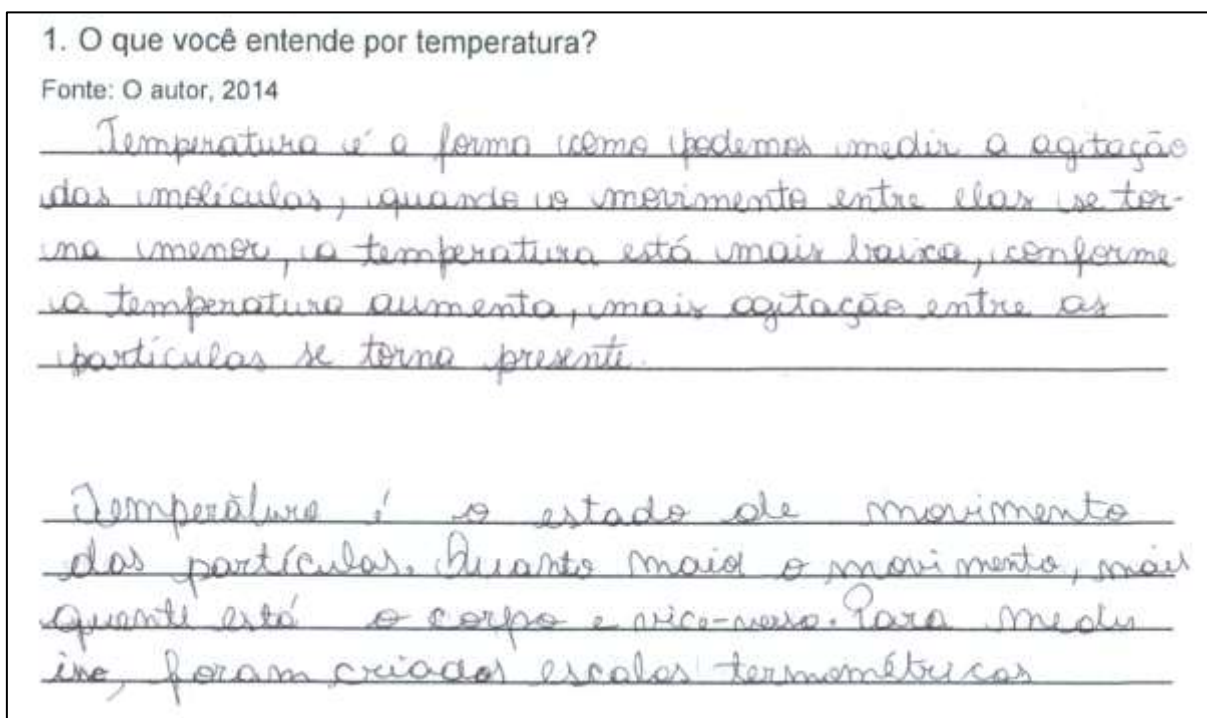 1. O que você entende por temperatura?
Fonte: O autor, 2014
Temperatura é a forma como podemos medir a agitação
das moléculas, quando o movimento entre elas se tor-
na menor, a temperatura está mais baixa, conforme
a temperatura aumenta, mais agitação entre as
partículas se torna presente.
Temperatura é o estado de movimento
das partículas. Quanto maior o movimento, mais
quente está o corpo e vice-versa. Para medir
isso, foram criadas escalas termométricas